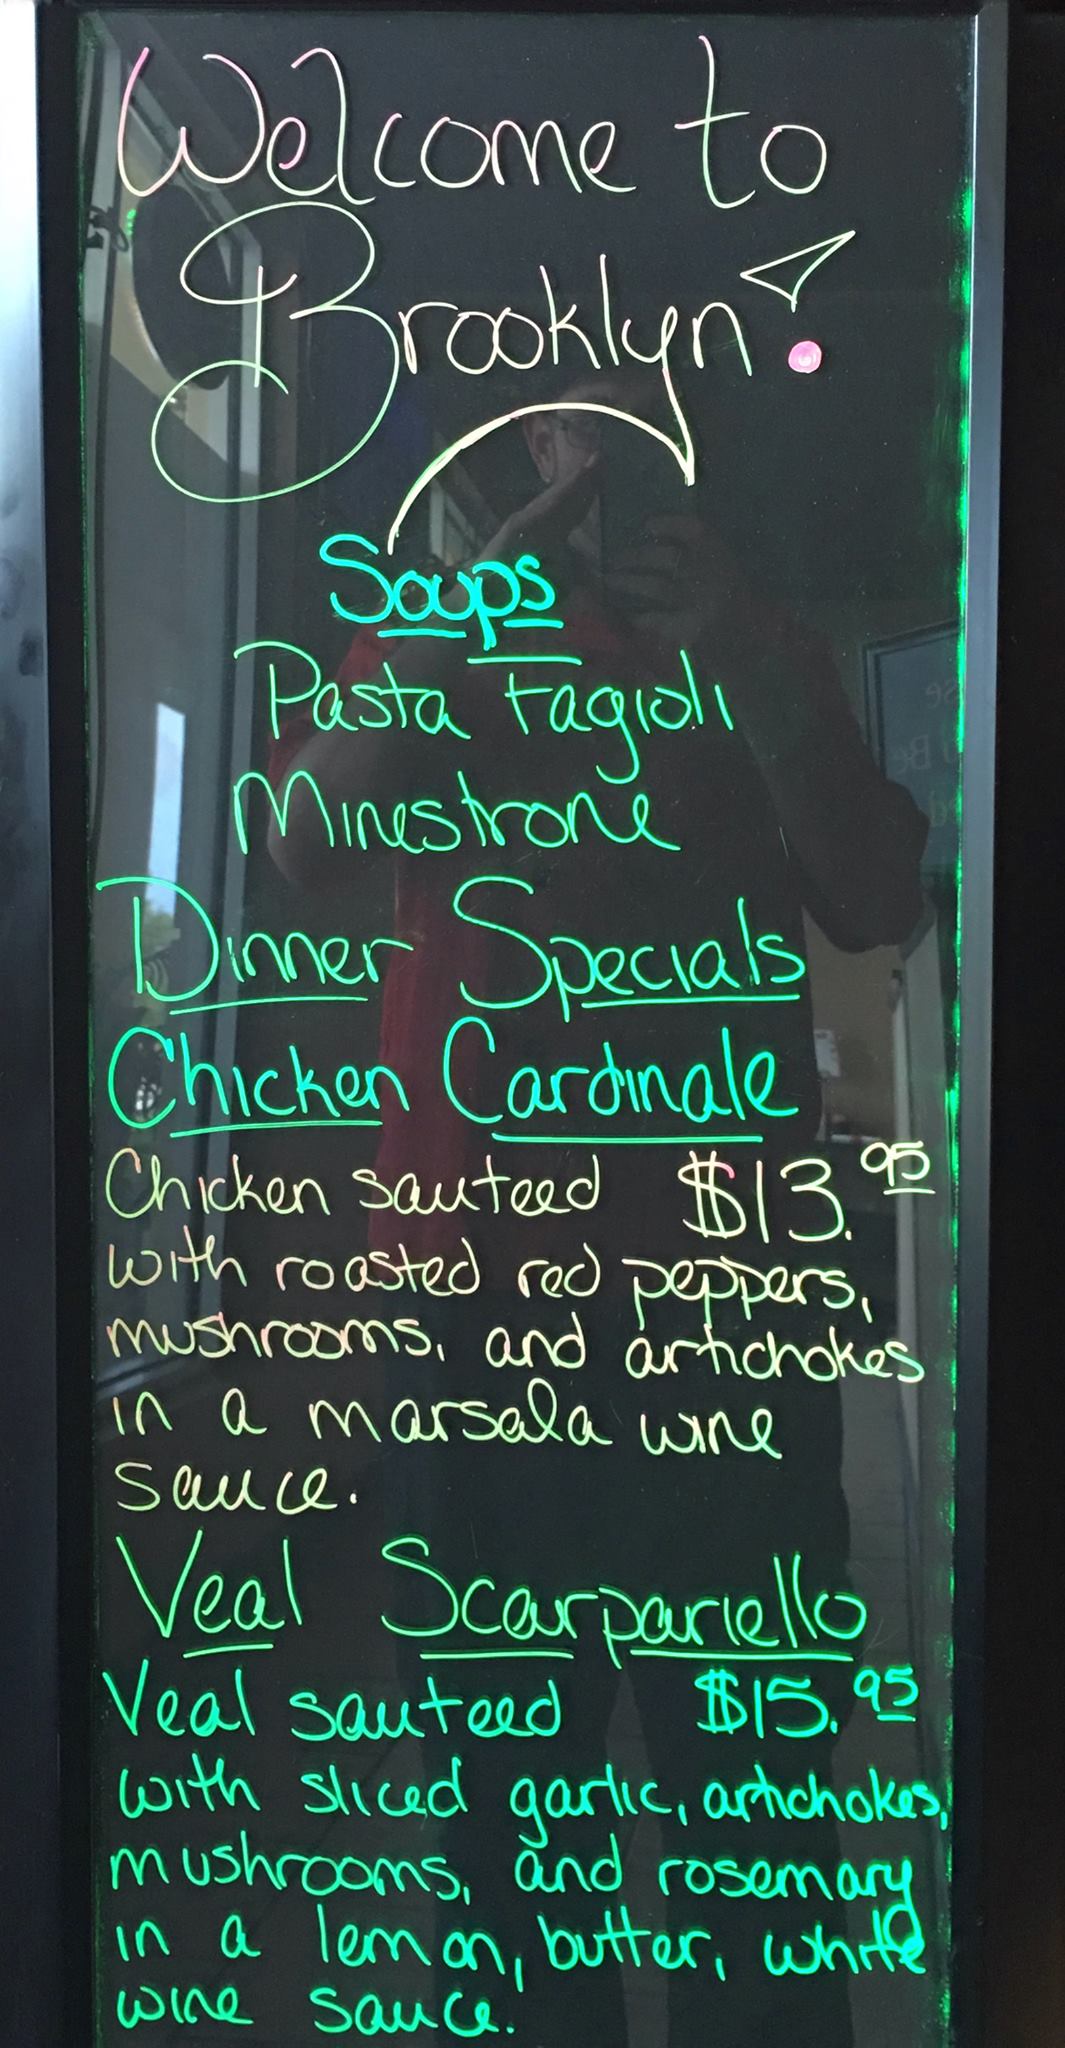 Welcome to
Brooklyn!
Soups
Pasta Fagioli
Minestrone
Dinner Specials
Chicken Cardinale
Chicken sauteed $13.95
with roasted red peppers,
mushrooms, and artichokes
in a marsala wine
sauce.
Veal Scarpariello
Veal sauteed $15.95
with sliced garlic, artichokes,
mushrooms, and rosemary
in a lemon, butter, white
wine sauce.